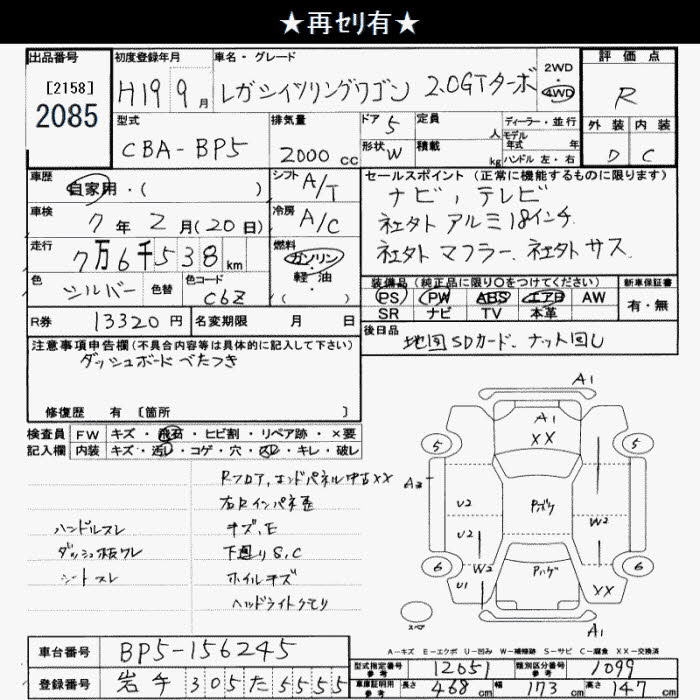 ★再セリ有★
出品番号 初度登録年月 車名・グレード 評価点
[2158]
2085
H19 9月 レガシイツリングワゴン 2.0GTターボ 2WD・4WD R
型式 排気量 ドア 定員 ディーラー・並行 外装 内装
CBA-BP5 2000cc 5 人 モデル年式 年 D C
形状 W 積載 kg ハンドル 左・右
車歴 自家用・( ) シフト A/T セールスポイント (正常に機能するものに限ります)
ナビ、テレビ
車検 7年2月(20日) 冷房 A/C 社外アルミ18インチ
走行 7万6千538km 燃料 ガソリン・軽油( ) 社外マフラー、社外サス
色 シルバー 色替 色コード C6Z 装備品 (純正品に限り○をつけてください) 新車保証書
PS PW ABS エアB AW 有・無
SR ナビ TV 本革
R券 13320円 名変期限 月 日 後日品 地図SDカード、ナット回し
注意事項申告欄(不具合内容等は具体的に記入して下さい)
ダッシュボードべたつき
修復歴 有 [箇所 ]
検査員 FW キズ・飛石・ヒビ割・リペア跡・×要
記入欄 内装 キズ・汚れ・コゲ・穴・スレ・キレ・破レ
Rフロア、エンドパネル中古XX
右Rインパネ歪
ハンドルスレ キズ、E
ダッシュ板ワレ 下廻りS,C
シートスレ ホイルキズ
ヘッドライトクモリ
A1
A1
XX
5 5
A2
U2 Pハゲ W2
U2
6 W2 Pハゲ 6
U1 XX
スペア A1
A-キズ E-エクボ U-凹み W-補修跡 S-サビ C-腐食 XX-交換済
車台番号 BP5-156245
型式指定番号 参考 12651 類別区分番号 参考 1099
登録番号 岩手305た5555
車庫証明用 参考 長さ 468cm 幅 173cm 高さ 147cm